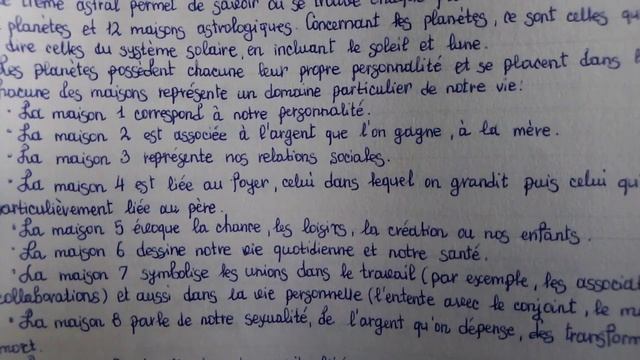 thème astral permet de savoir où se trouve chaque
planètes et 12 maisons astrologiques. Concernant les planètes, ce sont celles qu
dire celles du système solaire, en incluant le soleil et lune.
Les planètes possèdent chacune leur propre personnalité et se placent dans
hacune des maisons représente un domaine particulier de notre vie:
· La maison 1 correspond à notre personnalité.
· La maison 2 est associée à l'argent que l'on gagne, à la mère.
· La maison 3 représente nos relations sociales.
· La maison 4 est liée au foyer, celui dans lequel on grandit puis celui qu
articulièvement liée au père.
· La maison 5 évoque la chance, les loisirs, la création ou nos enfants.
· La maison 6 dessine notre vie quotidienne et notre santé.
· La maison 7 symbolise les unions dans le travail (par exemple, les associat
collaborations) et aussi dans la vie personnelle (l'entente avec le conjoint, le m
· La maison 8 parle de notre sexualité, de l'argent qu'on dépense, des transform
mort.